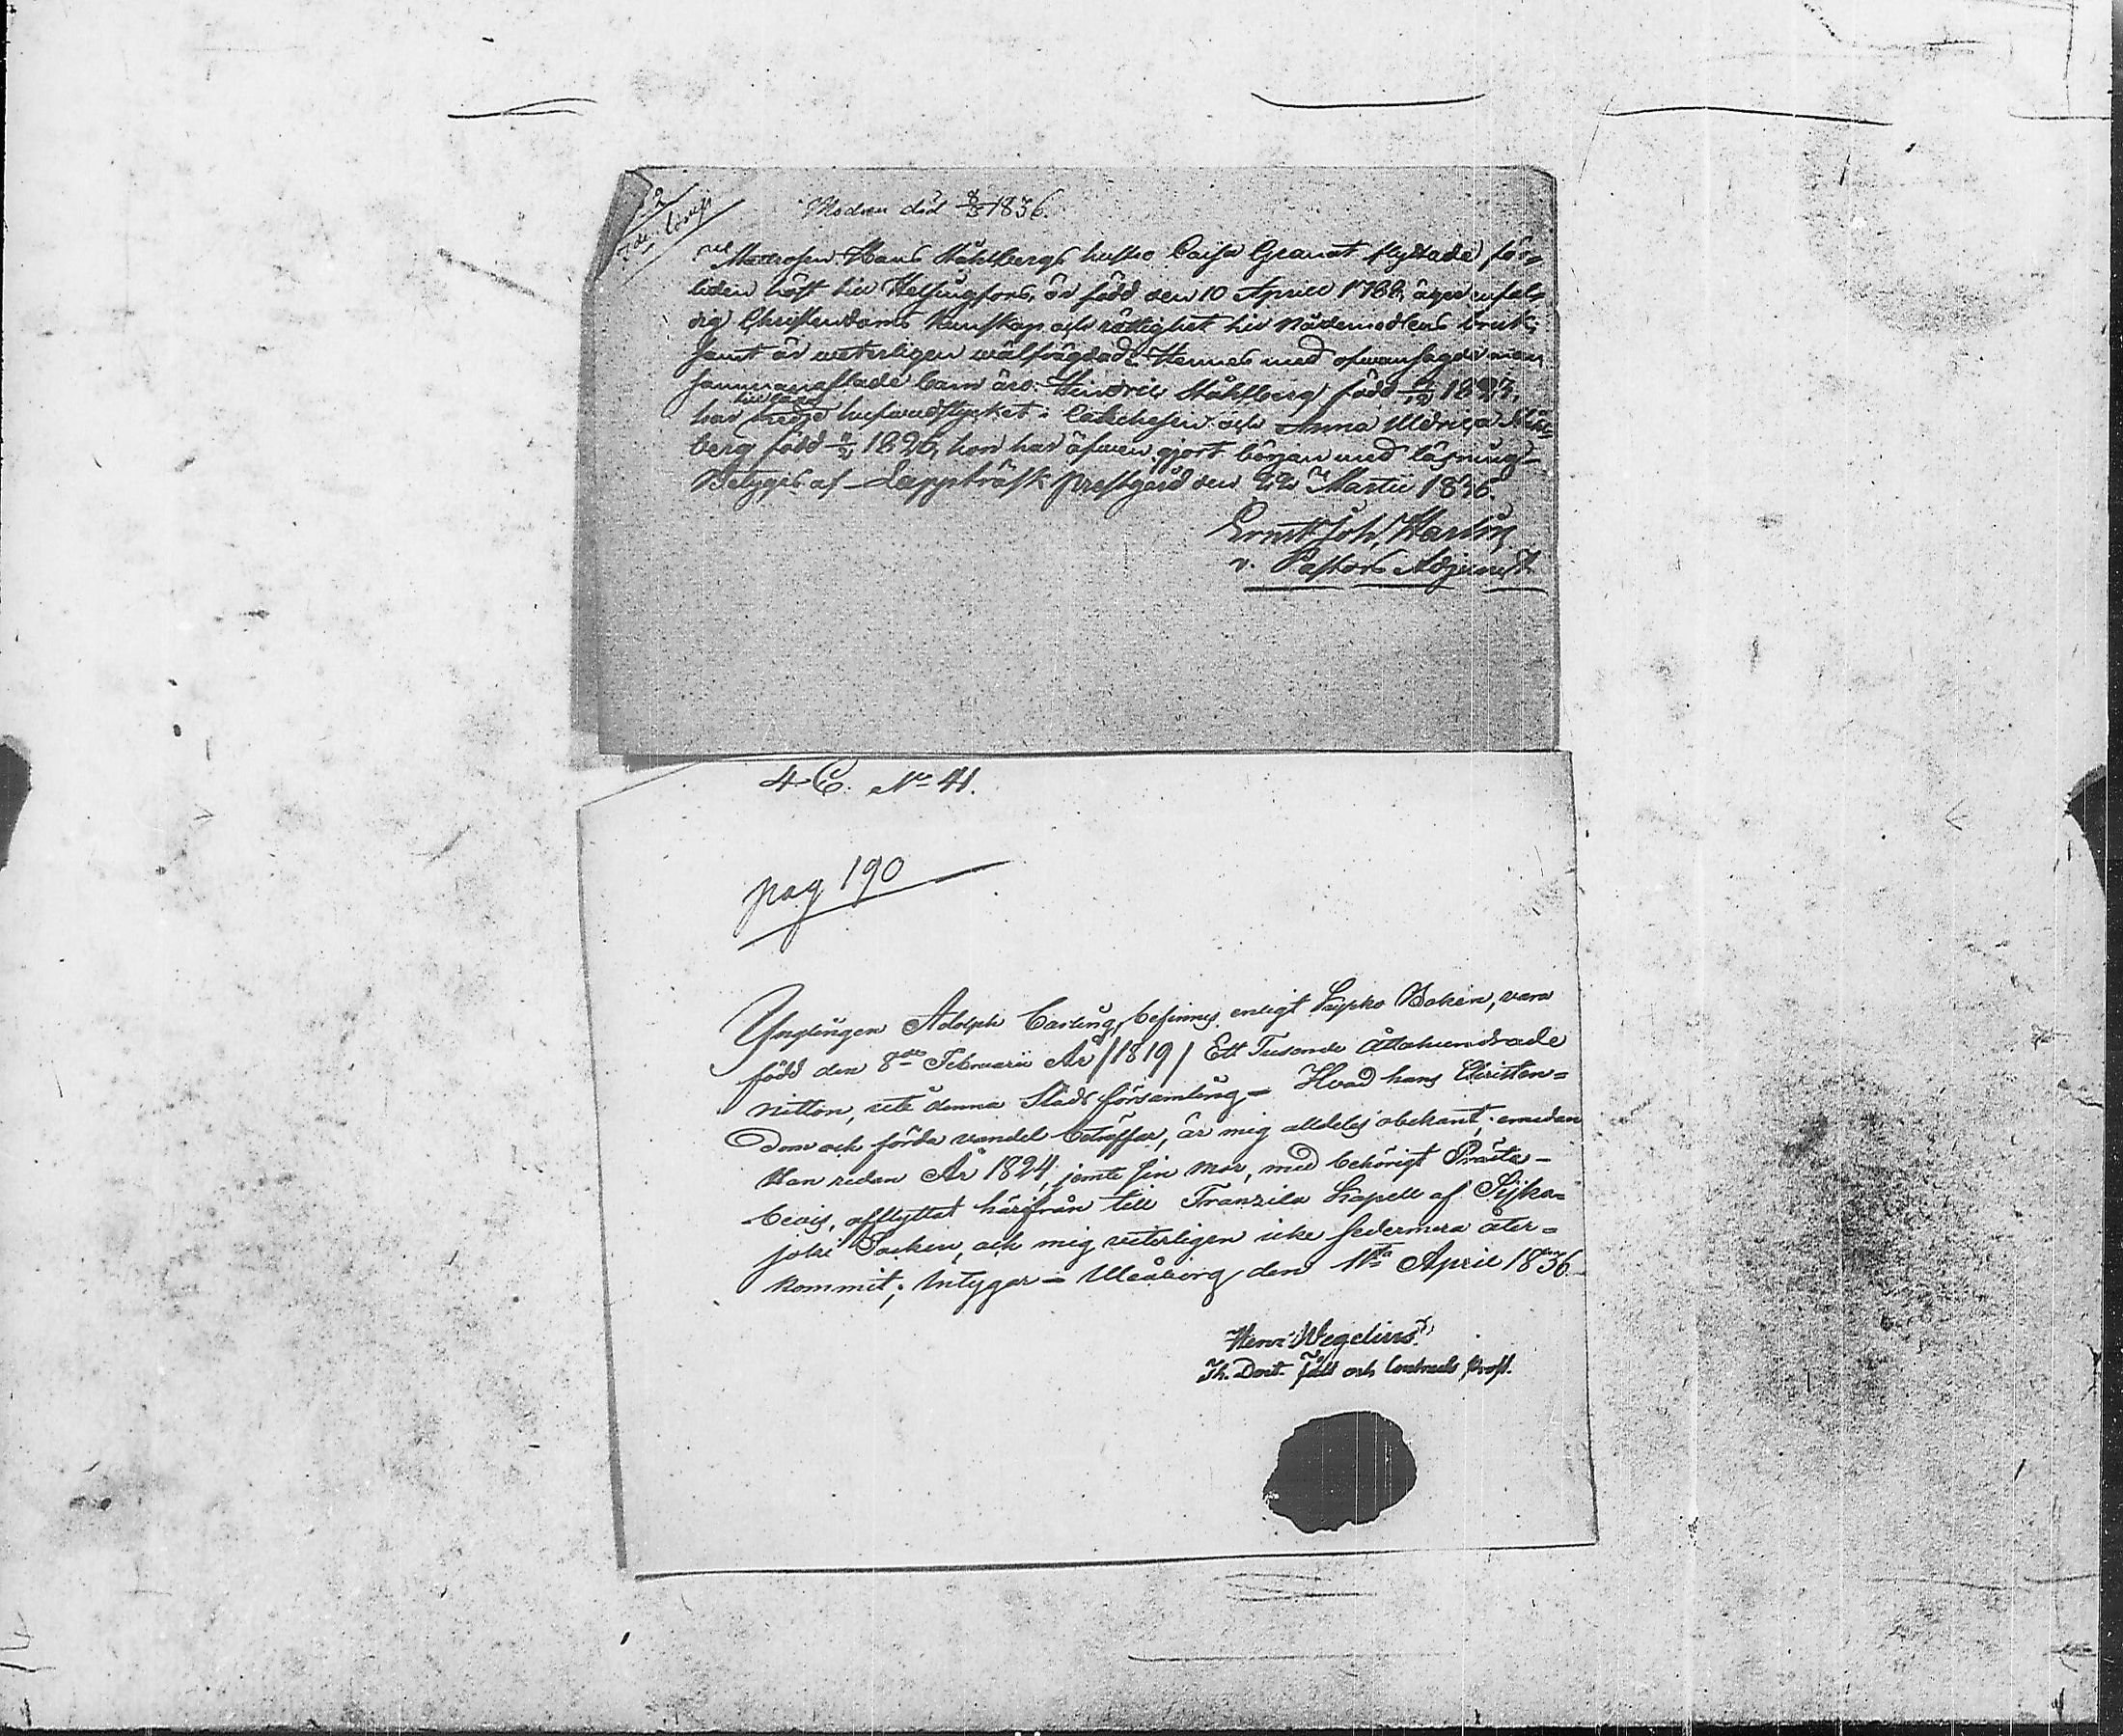 Modren död 8/3 1836.
Matrosen Hans Ståhlbergs hustro Caisa Granat flyttade för-
liden höst till Helsingfors, är född den 10 Aprill 1788, äger enfal-
dig Christendoms kunskap och rättighet till Nådemedlens bruk;
samt är veterligen wälfrägdad. Hennes med ofwansagde man
sammanaflade barn äro: Hendric Ståhlberg född 1823,
har hufwudstycket i Catechesen och Anna Uldrica Ståhl-
berg född 1826, hon har äfwen gjort början med läsning
Betygas af Lappträsk prestgård den 22 Martii 1836.
Ernst Joh.
v. Pastors Adjunct
4 C. No 41.
pag 190
Ynglingen Adolph Carling, befinnes enligt Kyrko Boken, vara
född den 8de Februarii År /1819/ Ett Tusende åttahundrade
nitton, uti denna Stads församling – Hvad hans Christen-
dom och förda vandel beträffar, är mig alldeles obekant, emedan
Han redan År 1824, jemte sin Mor, med behörigt Präste-
bevis, afflyttat härifrån till Franzila Kapell af Sijka-
joki Socken, och mig veterligen icke sedermera åter-
kommit; Intygar – Uleåborg den 11ta April 1836.
Henr: Wegelius
Th. Doct. och Contracts Prost.